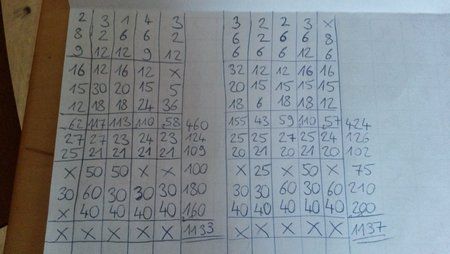 2 3 1 4 3 3 2 2 3 x
8 2 6 6 2 6 2 6 6 8
9 12 12 9 12 6 6 6 12 6
16 12 16 12 x 32 12 12 16 16
15 30 20 15 5 20 15 15 15 15
12 18 18 24 36 18 6 18 18 12
62 117 113 110 58 460 155 43 59 110 57 424
27 27 23 24 23 124 25 25 27 25 24 126
25 21 21 21 21 109 20 21 20 21 20 102
x 50 50 x x 100 x 25 x 50 x 75
30 60 30 30 30 180 30 30 60 30 60 210
x 40 40 40 40 160 40 40 40 40 40 200
x x x x x 1133 x x x x x 1137